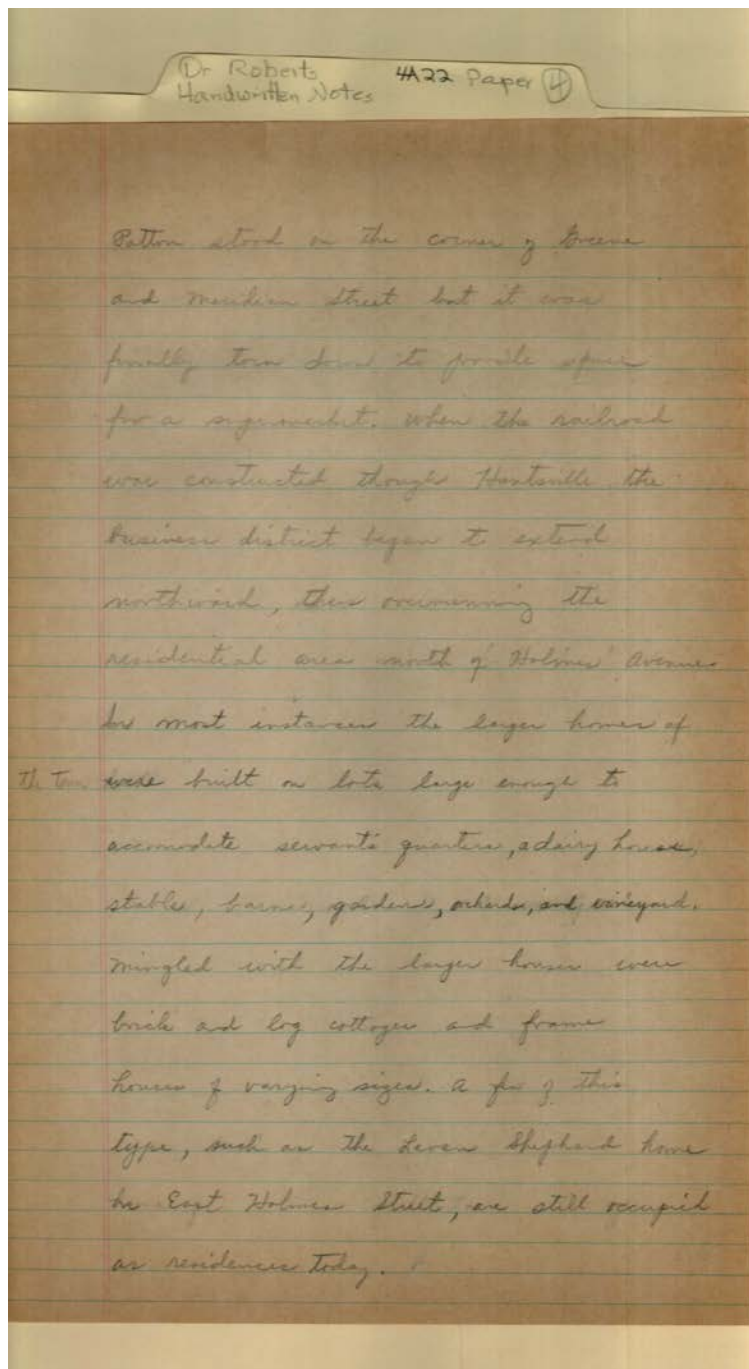 Dr Roberts 4A22 Paper 4
Handwritten Notes
Patton stood on the corner of Greene
and Meridian Street but it was
finally torn down to provide space
for a supermarket. When the railroad
was constructed though Huntsville the
business district began to extend
northward, thus overrunning the
residential area north of Holmes Avenue
In most instances the larger homes of
the town were built on lots large enough to
accomodate servants quarters, a dairy house,
stables, barns, gardens, orchards, and vineyard.
Mingled with the larger houses were
brick and log cottages and frame
houses of varying sizes. A few of this
type, such as the Leven Shephard home
on East Holmes Street, are still occupied
as residences today.